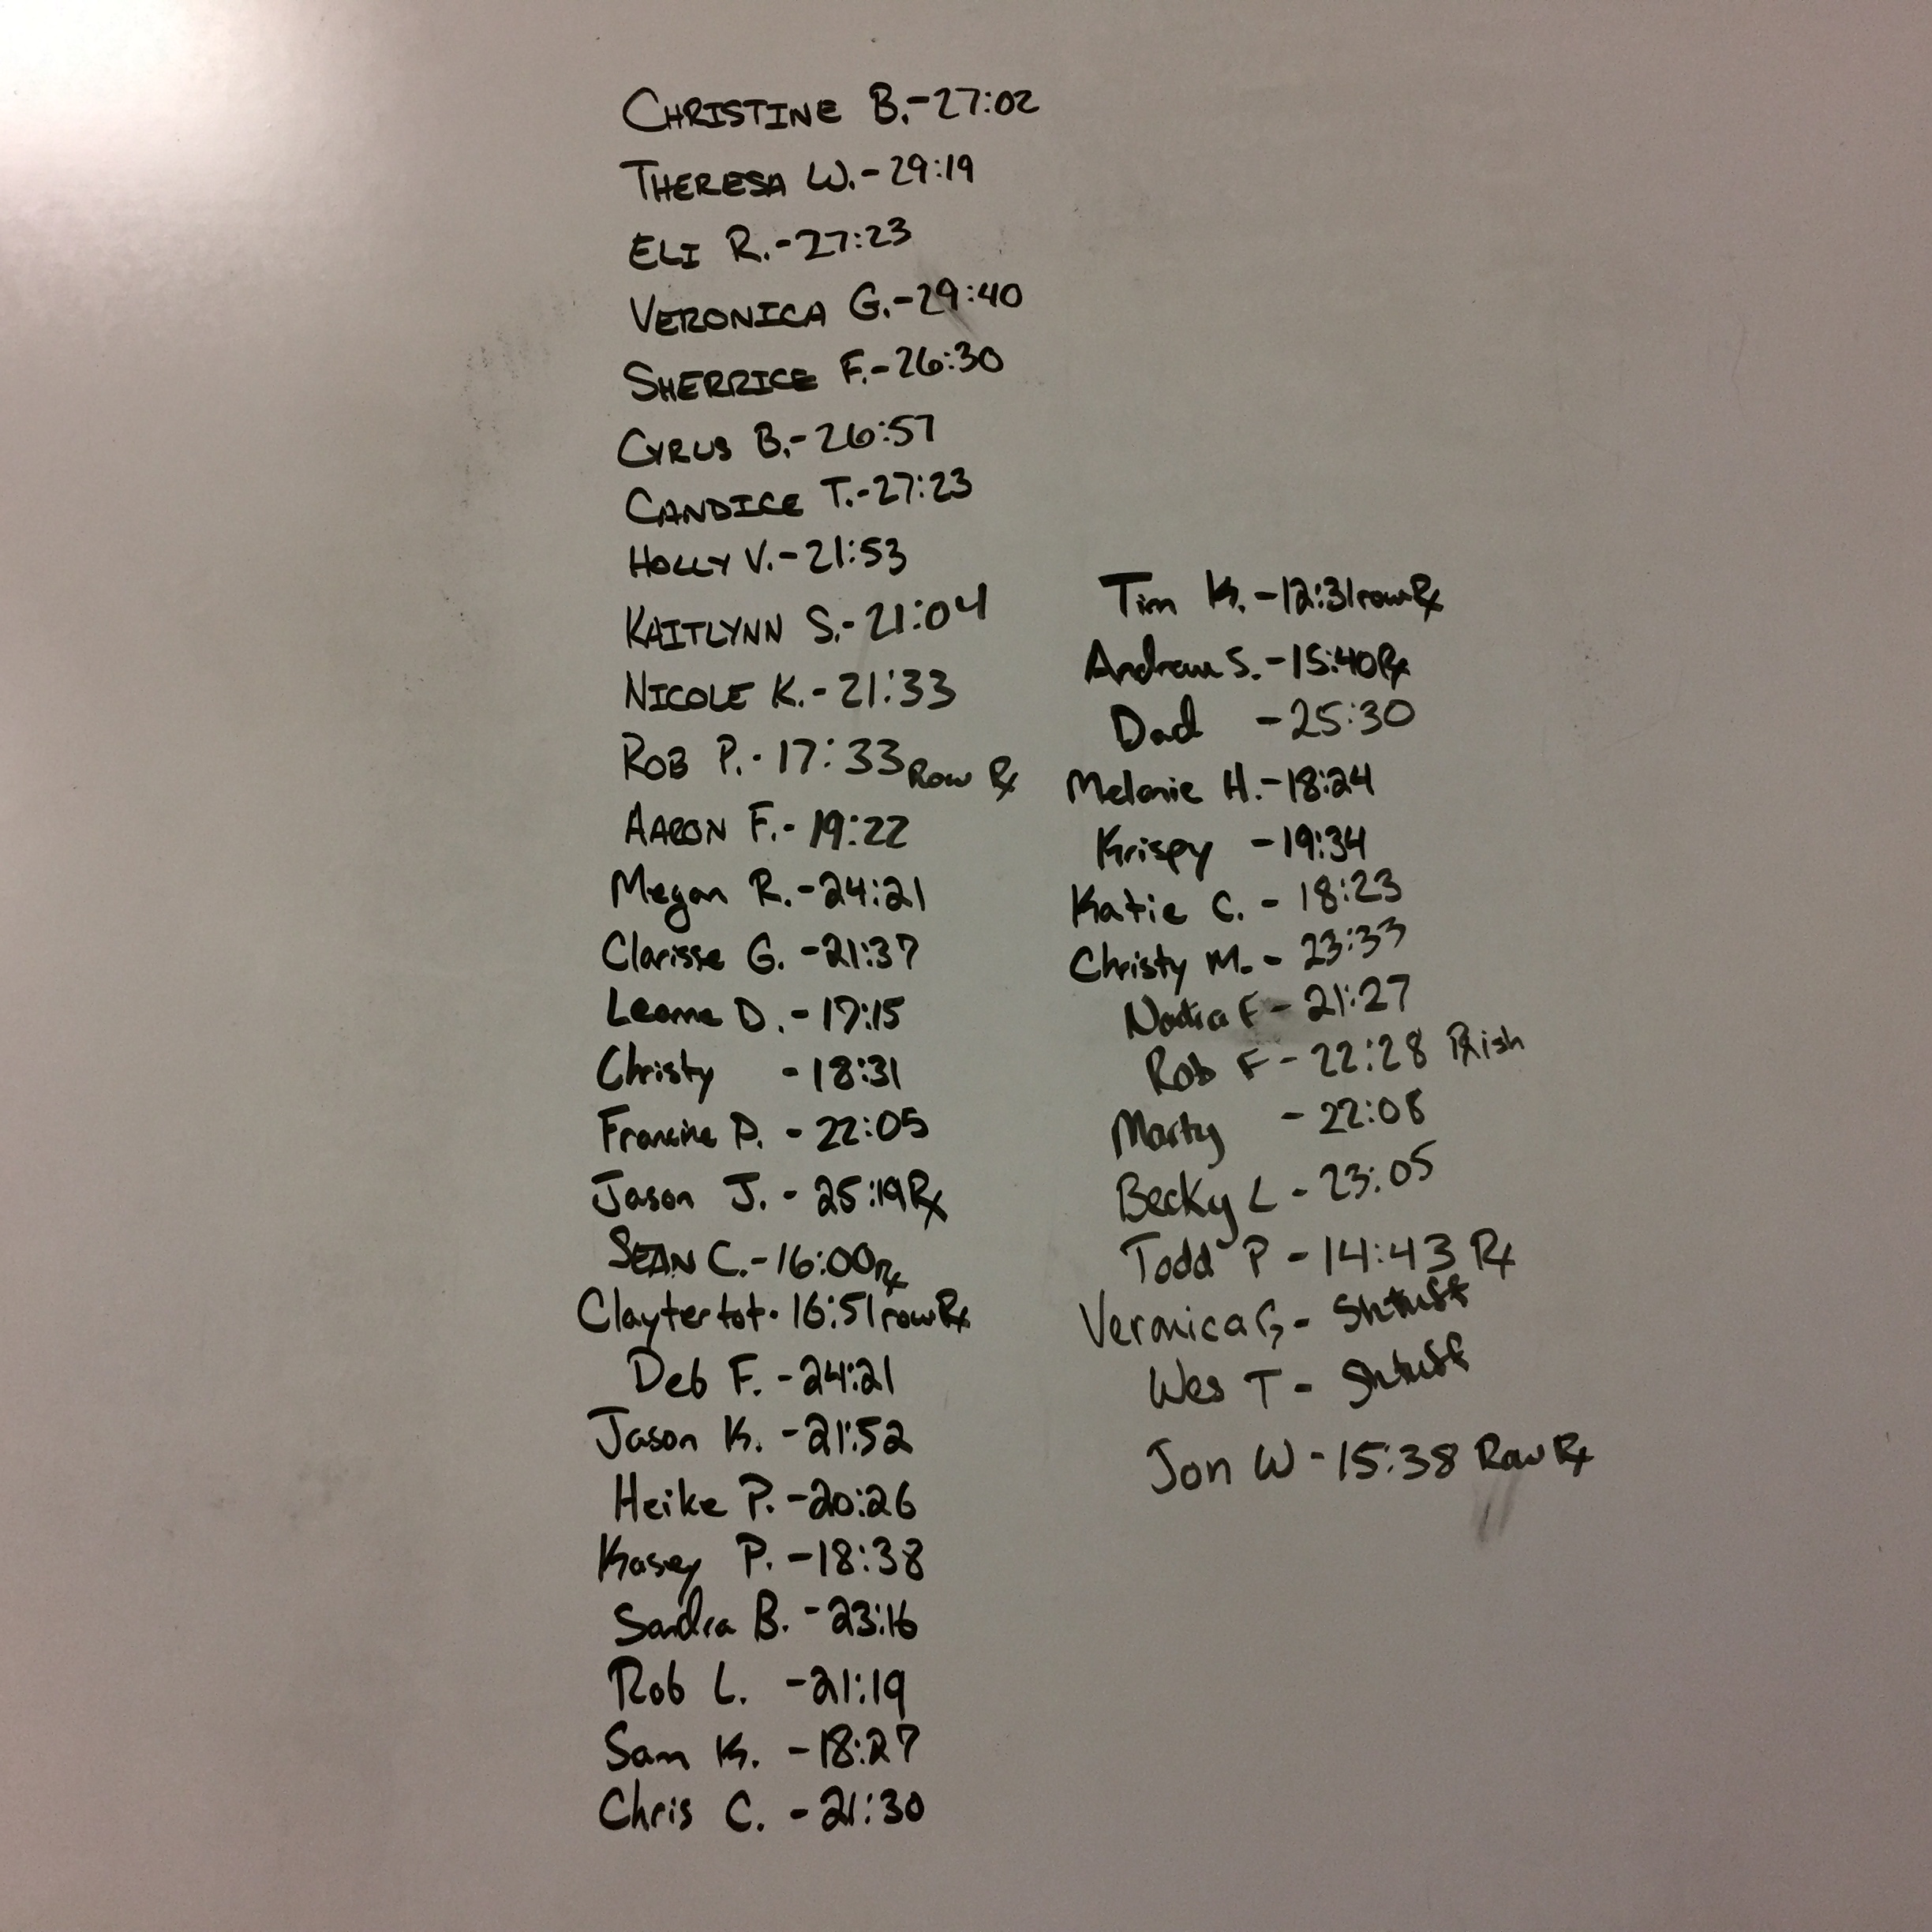 CHRISTINE B.-27:02
THERESA W.-29:19
ELI R.-27:23
VERONICA G.-29:40
SHERRICE F.-26:30
CYRUS B.-26:57
CANDICE T.-27:23
HOLLY V.-21:53
KAITLYNN S.-21:04
NICOLE K.-21:33
ROB P.-17:33 Row Rx
AARON F.-19:22
Megan R.-24:21
Clarisse G.-21:37
Leanne D.-17:15
Christy -18:31
Francine P.-22:05
Jason J.-25:19 Rx
SEAN C.-16:00 Rx
Claytertot-16:51 row Rx
Deb F.-24:21
Jason K.-21:52
Heike P.-20:26
Kasey P.-18:38
Sandra B.-23:16
Rob L.-21:19
Sam K.-18:27
Chris C.-21:30
Tim K.-12:31 row Rx
Andrew S.-15:40 Rx
Dad -25:30
Melanie H.-18:24
Krispy -19:34
Katie C.-18:23
Christy M.-23:33
Nadia F-21:27
Rob F-22:28 Rxish
Marty -22:08
Becky L-23:05
Todd P-14:43 Rx
Veronica G-Shtuff
Wes T-Shtuff
Jon W-15:38 Row Rx